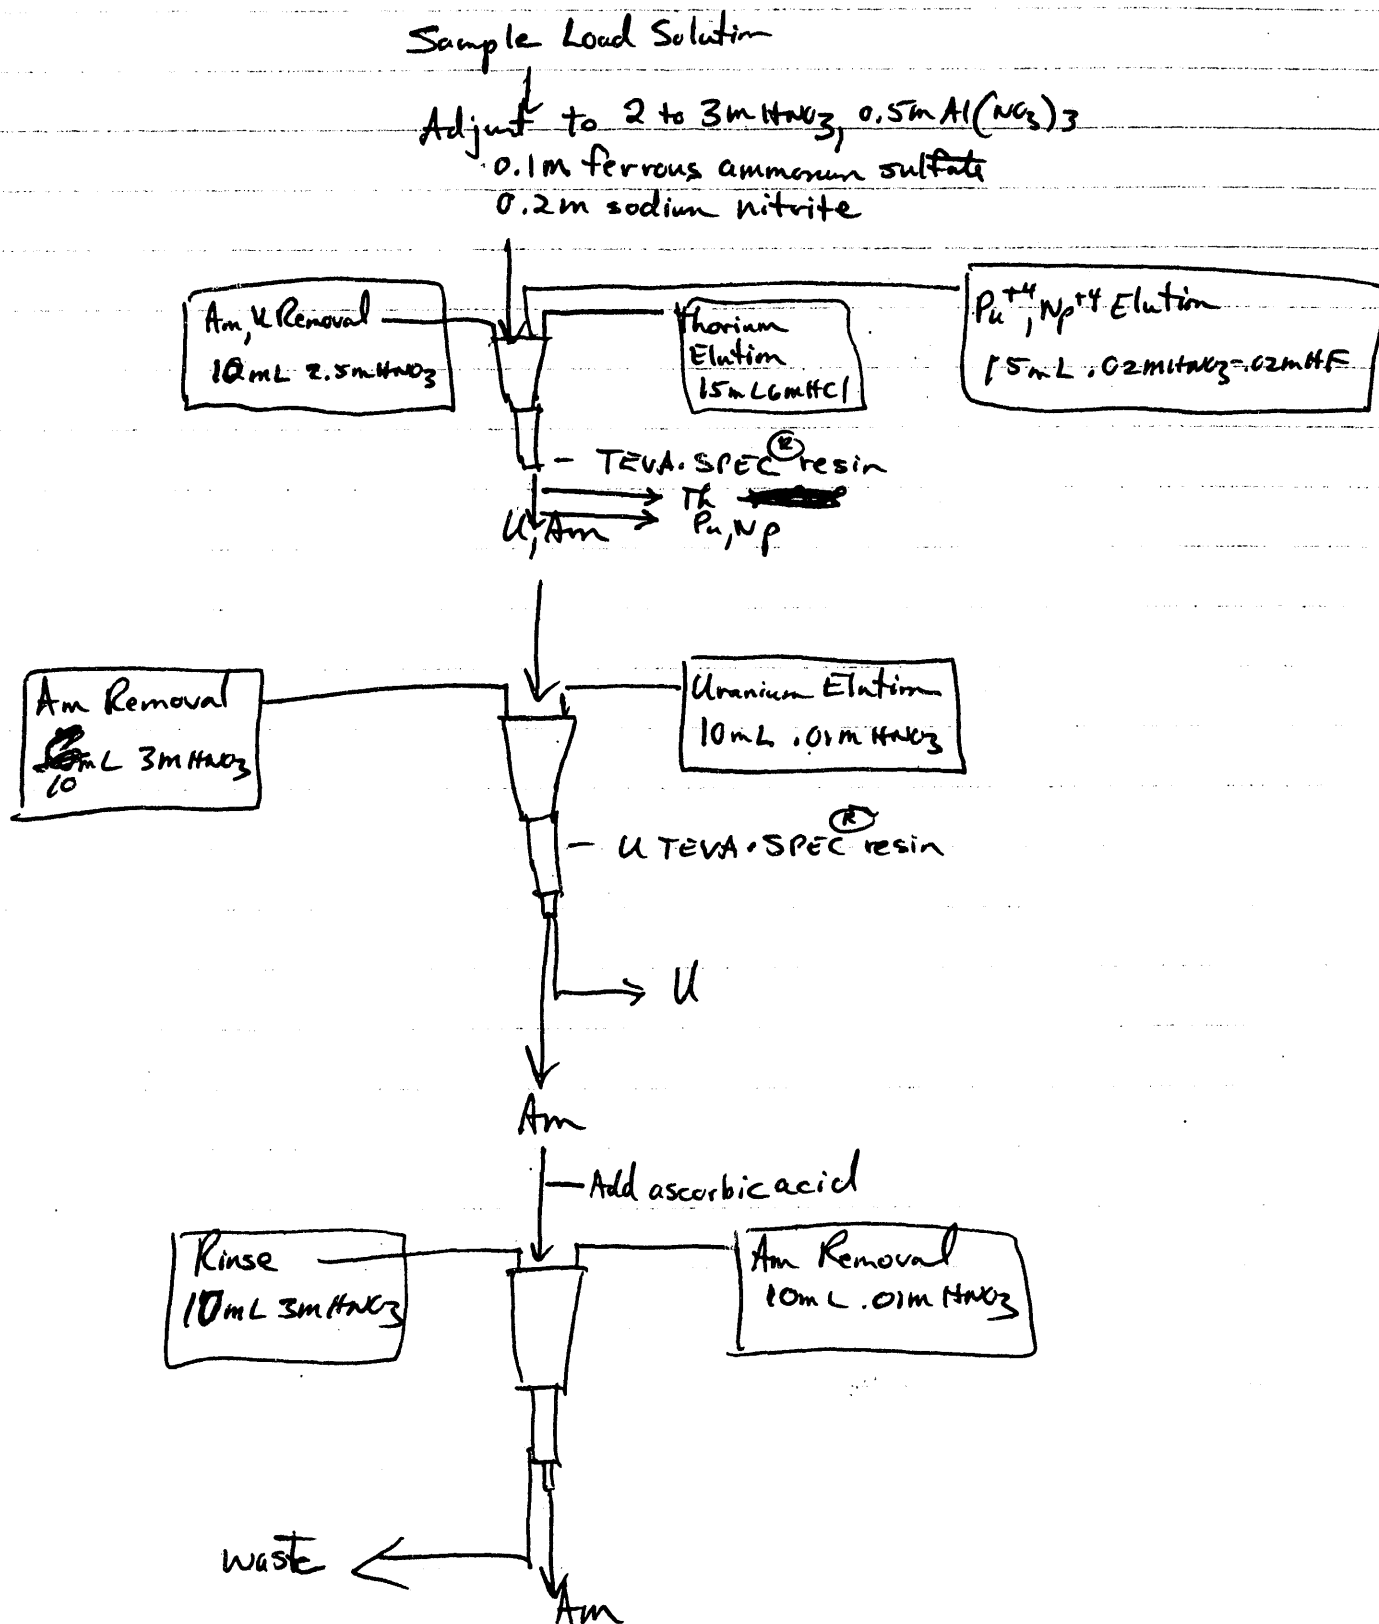 Sample Load Solution
Adjust to 2 to 3m HNO3, 0.5m Al(NO3)3
0.1m ferrous ammonium sulfate
0.2m sodium nitrite
Am, U Removal
10mL 2.5mHNO3
Thorium
Elution
15mL6mHCl
Pu+4, Np+4 Elution
15mL .02mHNO3-.02mHF
- TEVA.SPEC® resin
Th
U, Am
Pu, Np
Am Removal
10 mL 3mHNO3
Uranium Elution
10mL .01mHNO3
- U TEVA.SPEC® resin
U
Am
Add ascorbic acid
Rinse
10mL 3mHNO3
Am Removal
10mL .01mHNO3
waste
Am